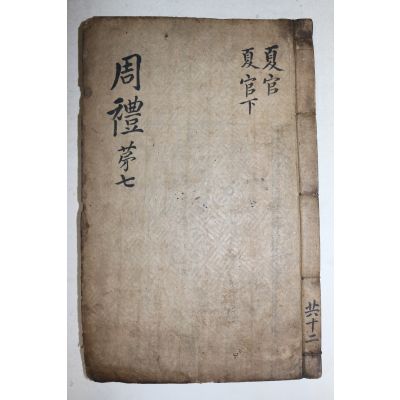 周禮 苐七
夏官
夏官下
共十二